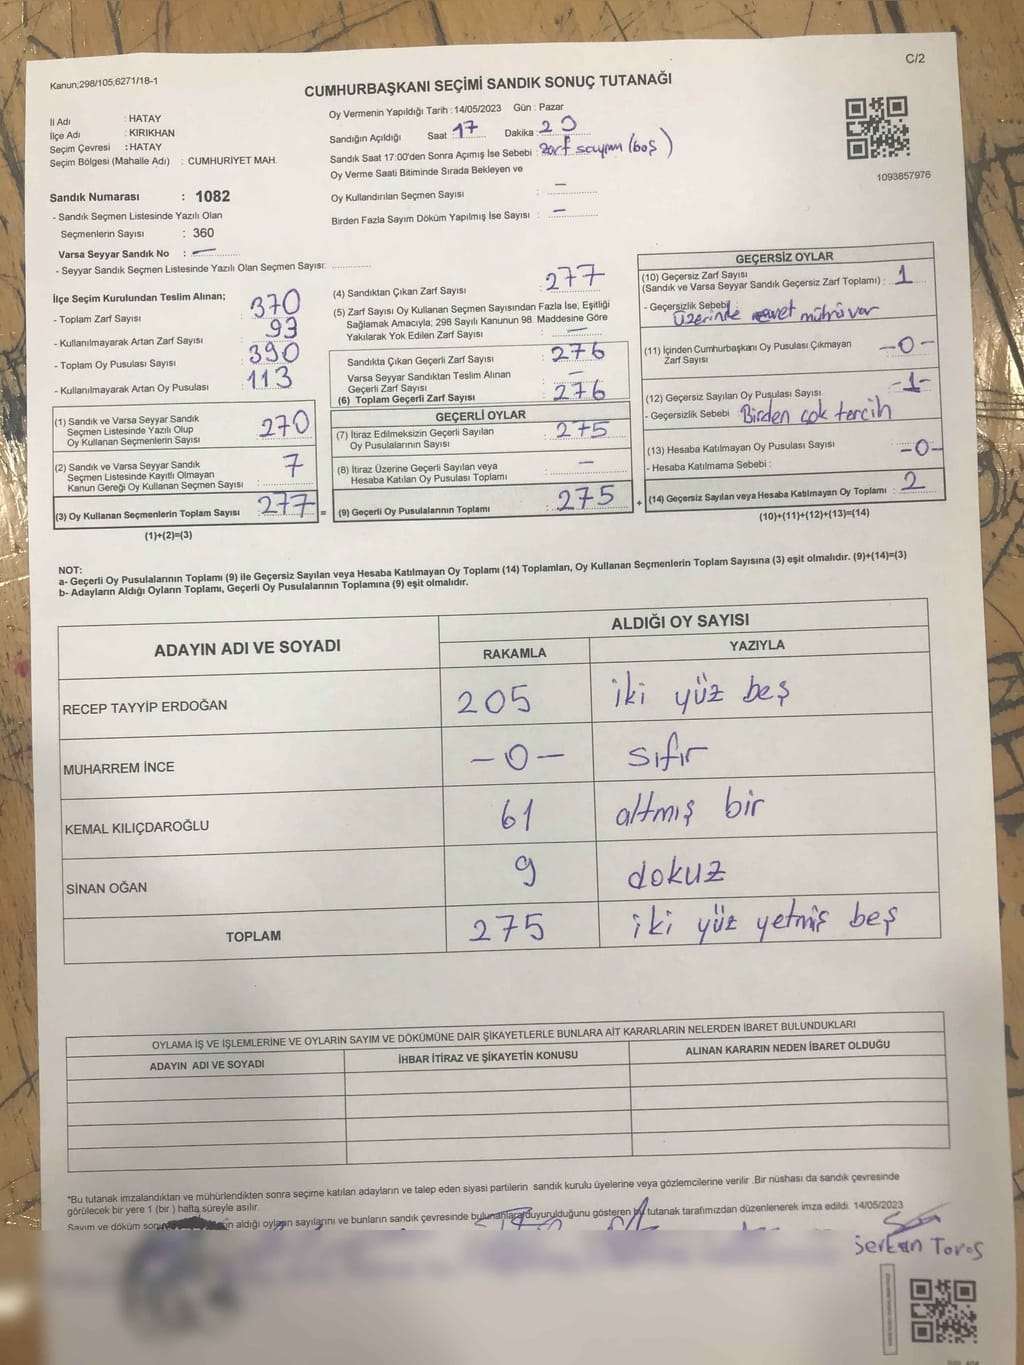 Kanun;298/105;6271/18-1
C/2
CUMHURBAŞKANI SEÇİMİ SANDIK SONUÇ TUTANAĞI
İl Adı : HATAY
İlçe Adı : KIRIKHAN
Seçim Çevresi : HATAY
Seçim Bölgesi (Mahalle Adı) : CUMHURİYET MAH.
Sandık Numarası : 1082
- Sandık Seçmen Listesinde Yazılı Olan
Seçmenlerin Sayısı : 360
Varsa Seyyar Sandık No : —
- Seyyar Sandık Seçmen Listesinde Yazılı Olan Seçmen Sayısı:
Oy Vermenin Yapıldığı Tarih : 14/05/2023 Gün : Pazar
Sandığın Açıldığı Saat : 17 Dakika : 20
Sandık Saat 17:00'den Sonra Açımış İse Sebebi : Zarf sayımı (boş)
Oy Verme Saati Bitiminde Sırada Bekleyen ve
Oy Kullandırılan Seçmen Sayısı : —
Birden Fazla Sayım Döküm Yapılmış İse Sayısı : —
1093857976
İlçe Seçim Kurulundan Teslim Alınan;
- Toplam Zarf Sayısı : 370
- Kullanılmayarak Artan Zarf Sayısı : 93
- Toplam Oy Pusulası Sayısı : 390
- Kullanılmayarak Artan Oy Pusulası : 113
(1) Sandık ve Varsa Seyyar Sandık
Seçmen Listesinde Yazılı Olup
Oy Kullanan Seçmenlerin Sayısı : 270
(2) Sandık ve Varsa Seyyar Sandık
Seçmen Listesinde Kayıtlı Olmayan
Kanun Gereği Oy Kullanan Seçmen Sayısı : 7
(3) Oy Kullanan Seçmenlerin Toplam Sayısı : 277 =
(1)+(2)=(3)
(4) Sandıktan Çıkan Zarf Sayısı : 277
(5) Zarf Sayısı Oy Kullanan Seçmen Sayısından Fazla İse, Eşitliği
Sağlamak Amacıyla; 298 Sayılı Kanunun 98. Maddesine Göre
Yakılarak Yok Edilen Zarf Sayısı : —
Sandıkta Çıkan Geçerli Zarf Sayısı : 276
Varsa Seyyar Sandıktan Teslim Alınan
Geçerli Zarf Sayısı : —
(6) Toplam Geçerli Zarf Sayısı : 276
GEÇERLİ OYLAR
(7) İtiraz Edilmeksizin Geçerli Sayılan
Oy Pusulalarının Sayısı : 275
(8) İtiraz Üzerine Geçerli Sayılan veya
Hesaba Katılan Oy Pusulası Toplamı : —
(9) Geçerli Oy Pusulalarının Toplamı : 275 +
GEÇERSİZ OYLAR
(10) Geçersiz Zarf Sayısı
(Sandık ve Varsa Seyyar Sandık Geçersiz Zarf Toplamı) : 1
- Geçersizlik Sebebi :
Üzerinde evet mührü var
(11) İçinden Cumhurbaşkanı Oy Pusulası Çıkmayan
Zarf Sayısı : -0-
(12) Geçersiz Sayılan Oy Pusulası Sayısı : -1-
- Geçersizlik Sebebi : Birden çok tercih
(13) Hesaba Katılmayan Oy Pusulası Sayısı : -0-
- Hesaba Katılmama Sebebi :
(14) Geçersiz Sayılan veya Hesaba Katılmayan Oy Toplamı : 2
(10)+(11)+(12)+(13)=(14)
NOT:
a- Geçerli Oy Pusulalarının Toplamı (9) ile Geçersiz Sayılan veya Hesaba Katılmayan Oy Toplamı (14) Toplamları, Oy Kullanan Seçmenlerin Toplam Sayısına (3) eşit olmalıdır. (9)+(14)=(3)
b- Adayların Aldığı Oyların Toplamı, Geçerli Oy Pusulalarının Toplamına (9) eşit olmalıdır.
ADAYIN ADI VE SOYADI
ALDIĞI OY SAYISI
RAKAMLA YAZIYLA
RECEP TAYYİP ERDOĞAN 205 iki yüz beş
MUHARREM İNCE -0- sıfır
KEMAL KILIÇDAROĞLU 61 altmış bir
SİNAN OĞAN 9 dokuz
TOPLAM 275 iki yüz yetmiş beş
OYLAMA İŞ VE İŞLEMLERİNE VE OYLARIN SAYIM VE DÖKÜMÜNE DAİR ŞİKAYETLERLE BUNLARA AİT KARARLARIN NELERDEN İBARET BULUNDUKLARI
ADAYIN ADI VE SOYADI İHBAR İTİRAZ VE ŞİKAYETİN KONUSU ALINAN KARARIN NEDEN İBARET OLDUĞU
*Bu tutanak imzalandıktan ve mühürlendikten sonra seçime katılan adayların ve talep eden siyasi partilerin sandık kurulu üyelerine veya gözlemcilerine verilir .Bir nüshası da sandık çevresinde
görülecek bir yere 1 (bir ) hafta süreyle asılır.
Sayım ve döküm aldığı oyların sayılarını ve bunların sandık çevresinde duyurulduğunu gösteren tutanak tarafımızdan düzenlenerek imza edildi. 14/05/2023
Serkan Toros